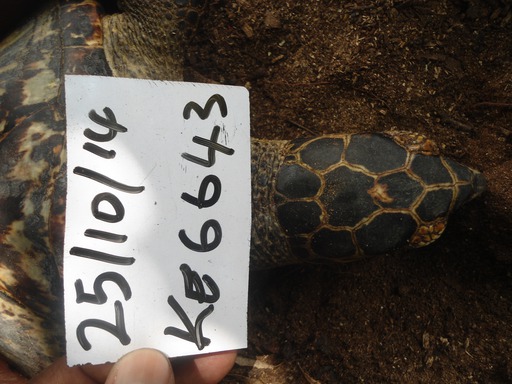 25/10/14
KE6643